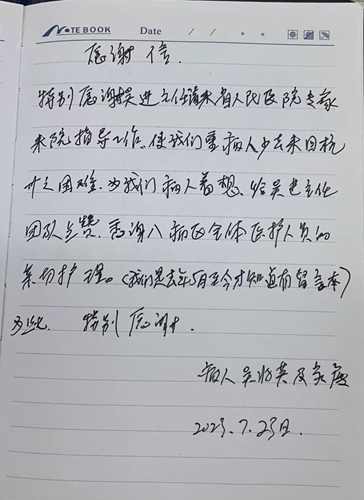 NOTE BOOK Date / /
感谢信.
特别感谢吴进主任请来省人民医院专家
来院指导工作、使我们重病人少去来回杭
州之困难.为我们病人着想.给吴进主任
团队点赞.感谢八病区全体医护人员的
亲切护理。(我们是去年5月至今才知道有留言本)
为此. 特别感谢.
病人吴 英及家属
2023.7.23日.